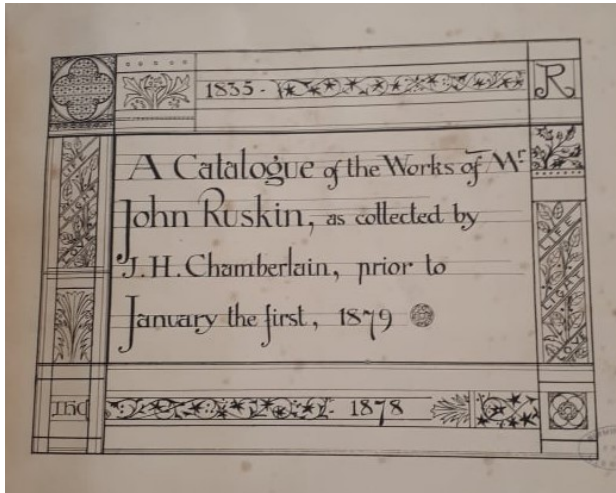 1835 -
R
A Catalogue of the Works of Mr
John Ruskin, as collected by
J. H. Chamberlain, prior to
January the first, 1879
JHC
- 1878